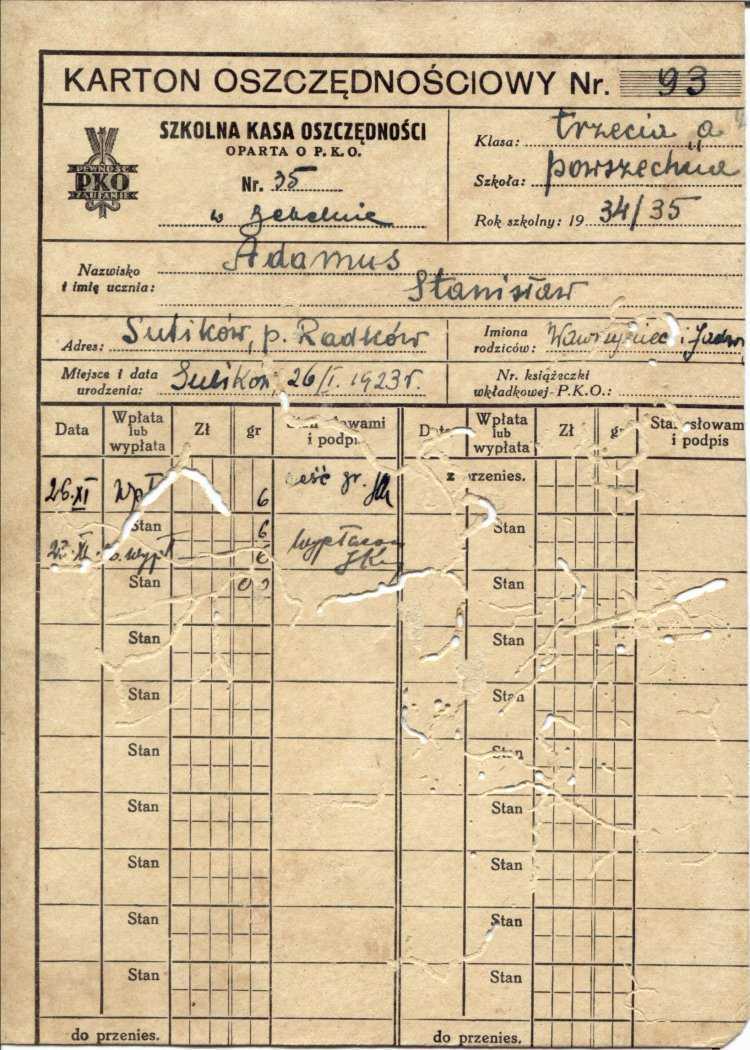 KARTON OSZCZĘDNOŚCIOWY Nr. 93
PEWNOŚĆ
PKO
ZAUFANIE
SZKOLNA KASA OSZCZĘDNOŚCI
OPARTA O P. K. O.
Nr. 35
w
Klasa: trzecia a
Szkoła: powszechna
Rok szkolny: 19 34/35
Nazwisko i imię ucznia: Adamus Stanisław
Adres: Sulików, p. Radków
Imiona rodziców: Wawrzyniec i
Miejsce i data urodzenia: Sulików, 26/I. 1923 r.
Nr. książeczki wkładkowej P.K.O.:
Data Wpłata lub wypłata Zł gr słowami i podpis Wpłata lub wypłata Zł gr Stan słowami i podpis
z przenies.
26.XI Wpł 6 sześć gr.
Stan 6 Stan
XI. wypł 6
Stan 00 Stan
Stan Stan
Stan Stan
Stan Stan
Stan Stan
Stan Stan
Stan Stan
Stan Stan
do przenies. do przenies.